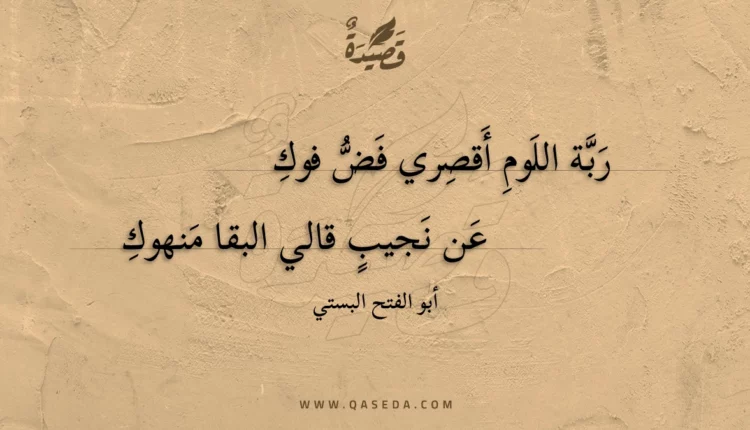 قَصِيدَةٌ
رَبَّة اللَومِ أَقصِري فَضُّ فوكِ
عَن نَجيبٍ قالي البقا مَنهوكِ
أبو الفتح البستي
WWW.QASEDA.COM